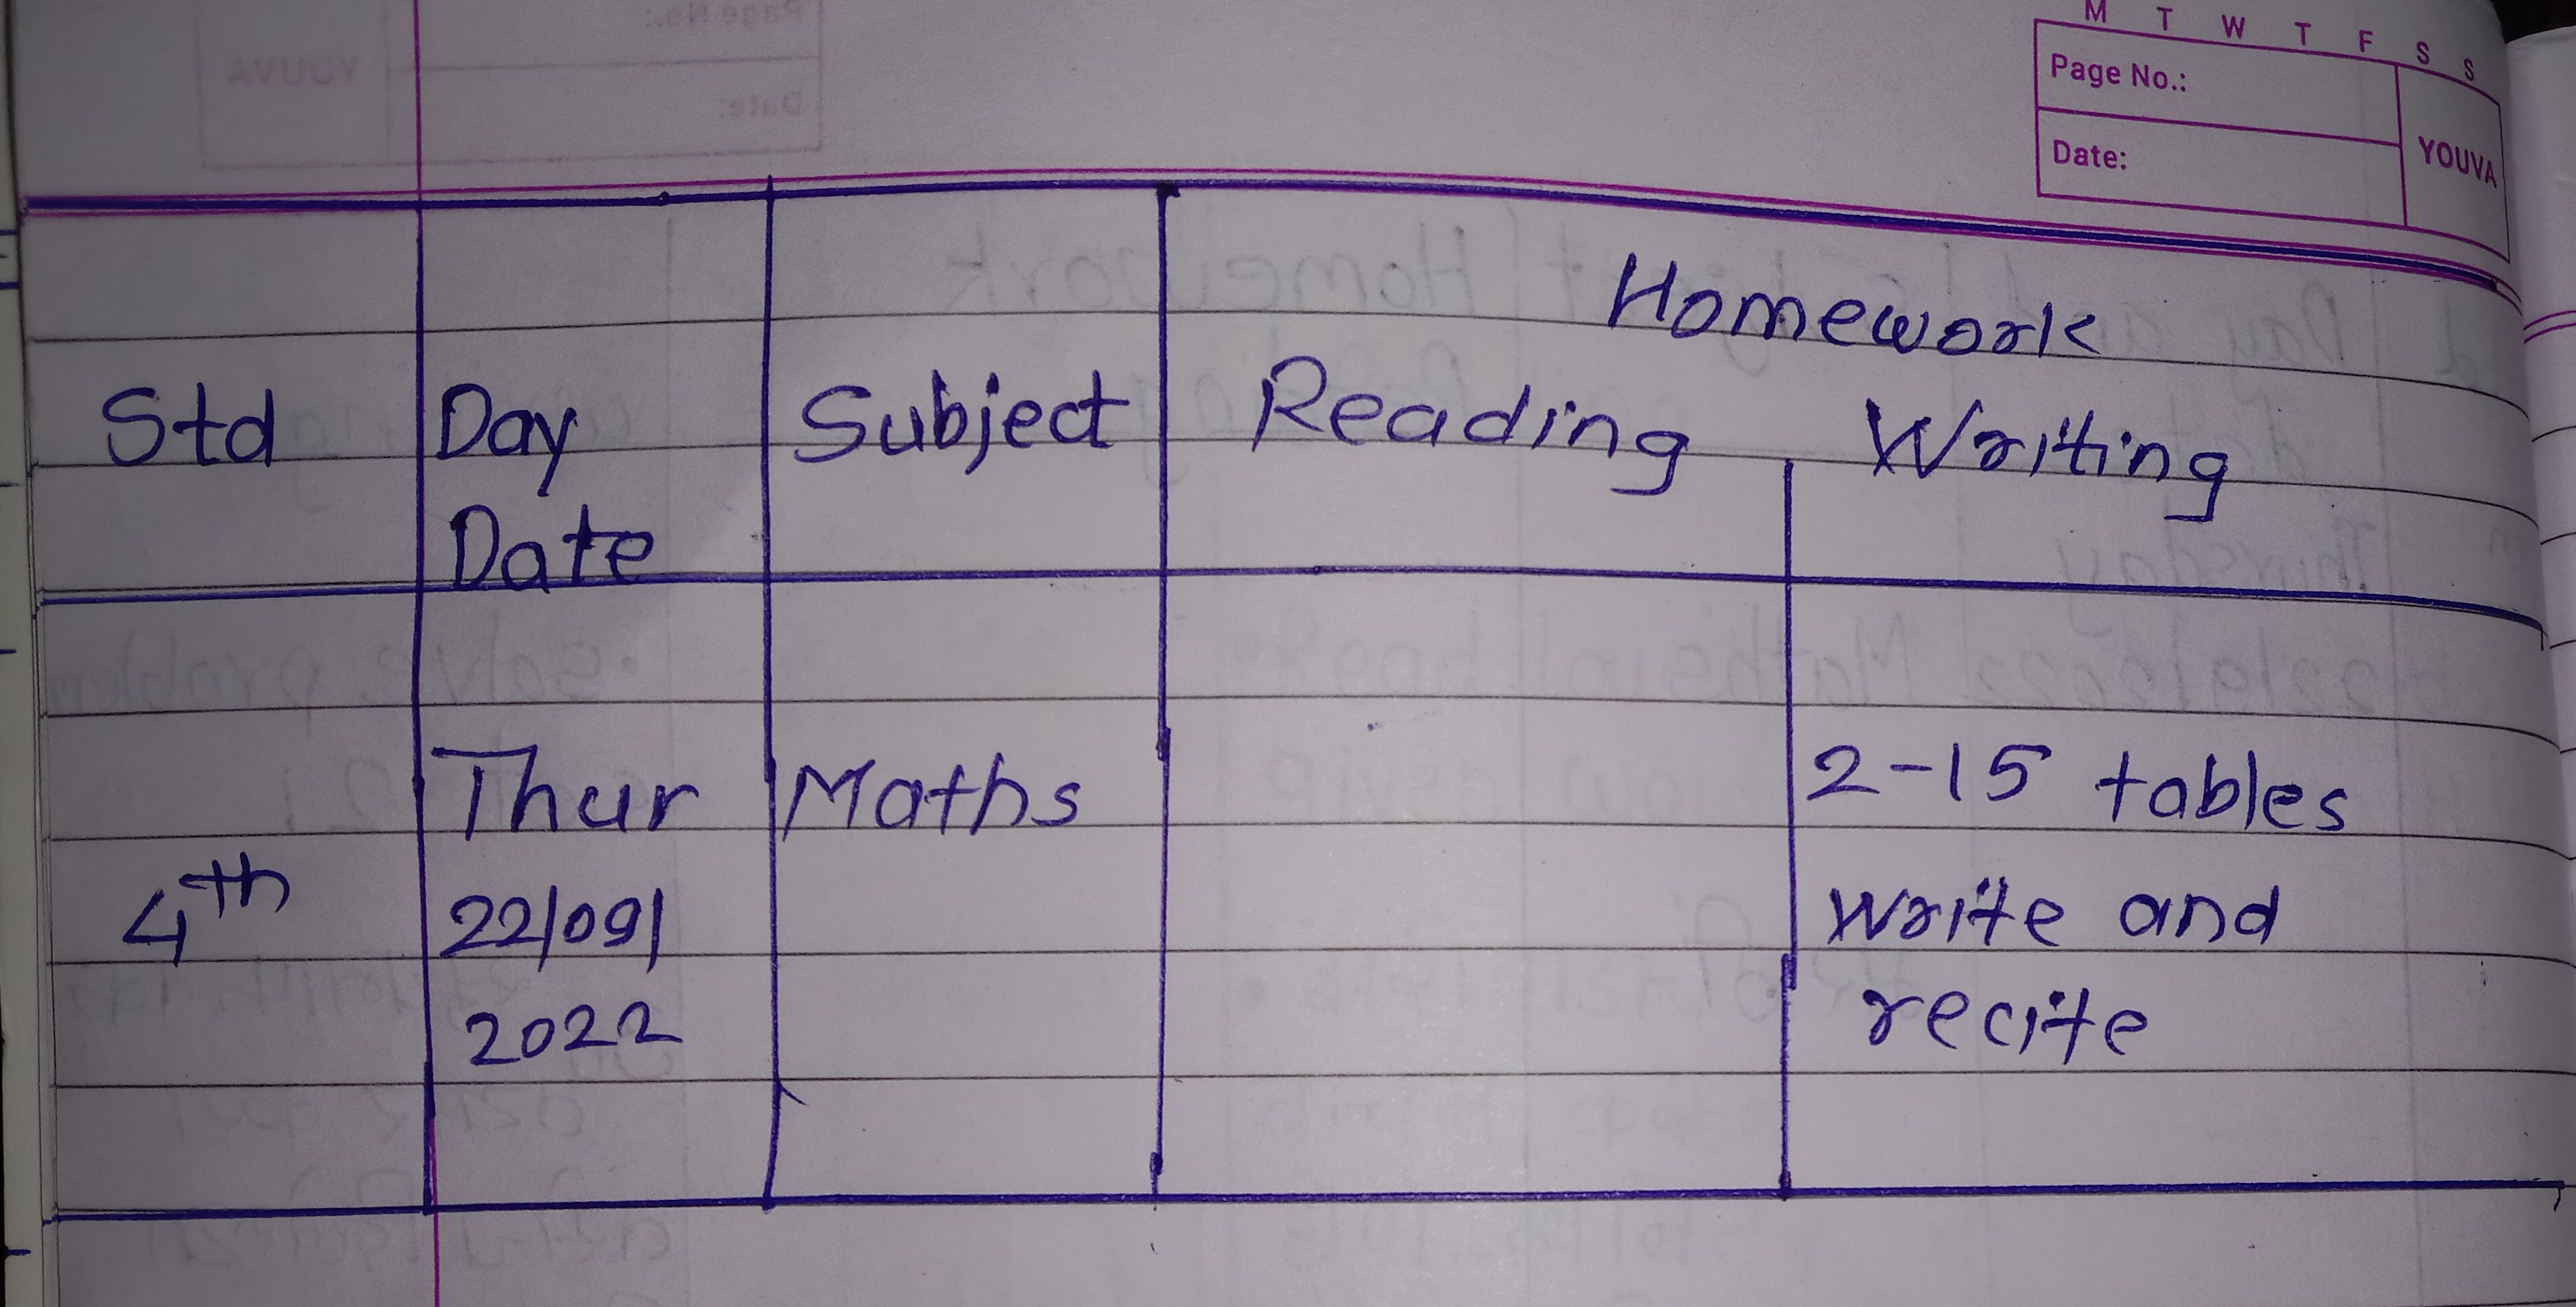 M T W T F S S
Page No.:
Date:
YOUVA
Homework
Std Day Subject Reading Writing
Date
Thur Maths 2-15 tables
4th 22/09/ write and
2022 recite